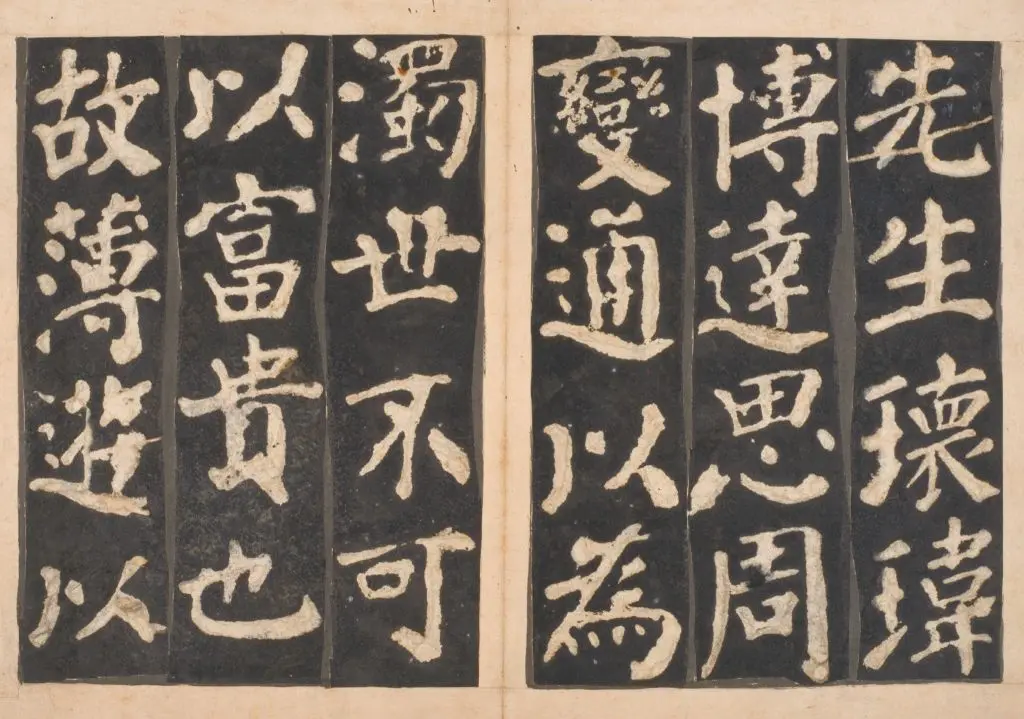 先生瓌瑋
博達思周
變通以為
濁世不可
以富貴也
故薄遊以